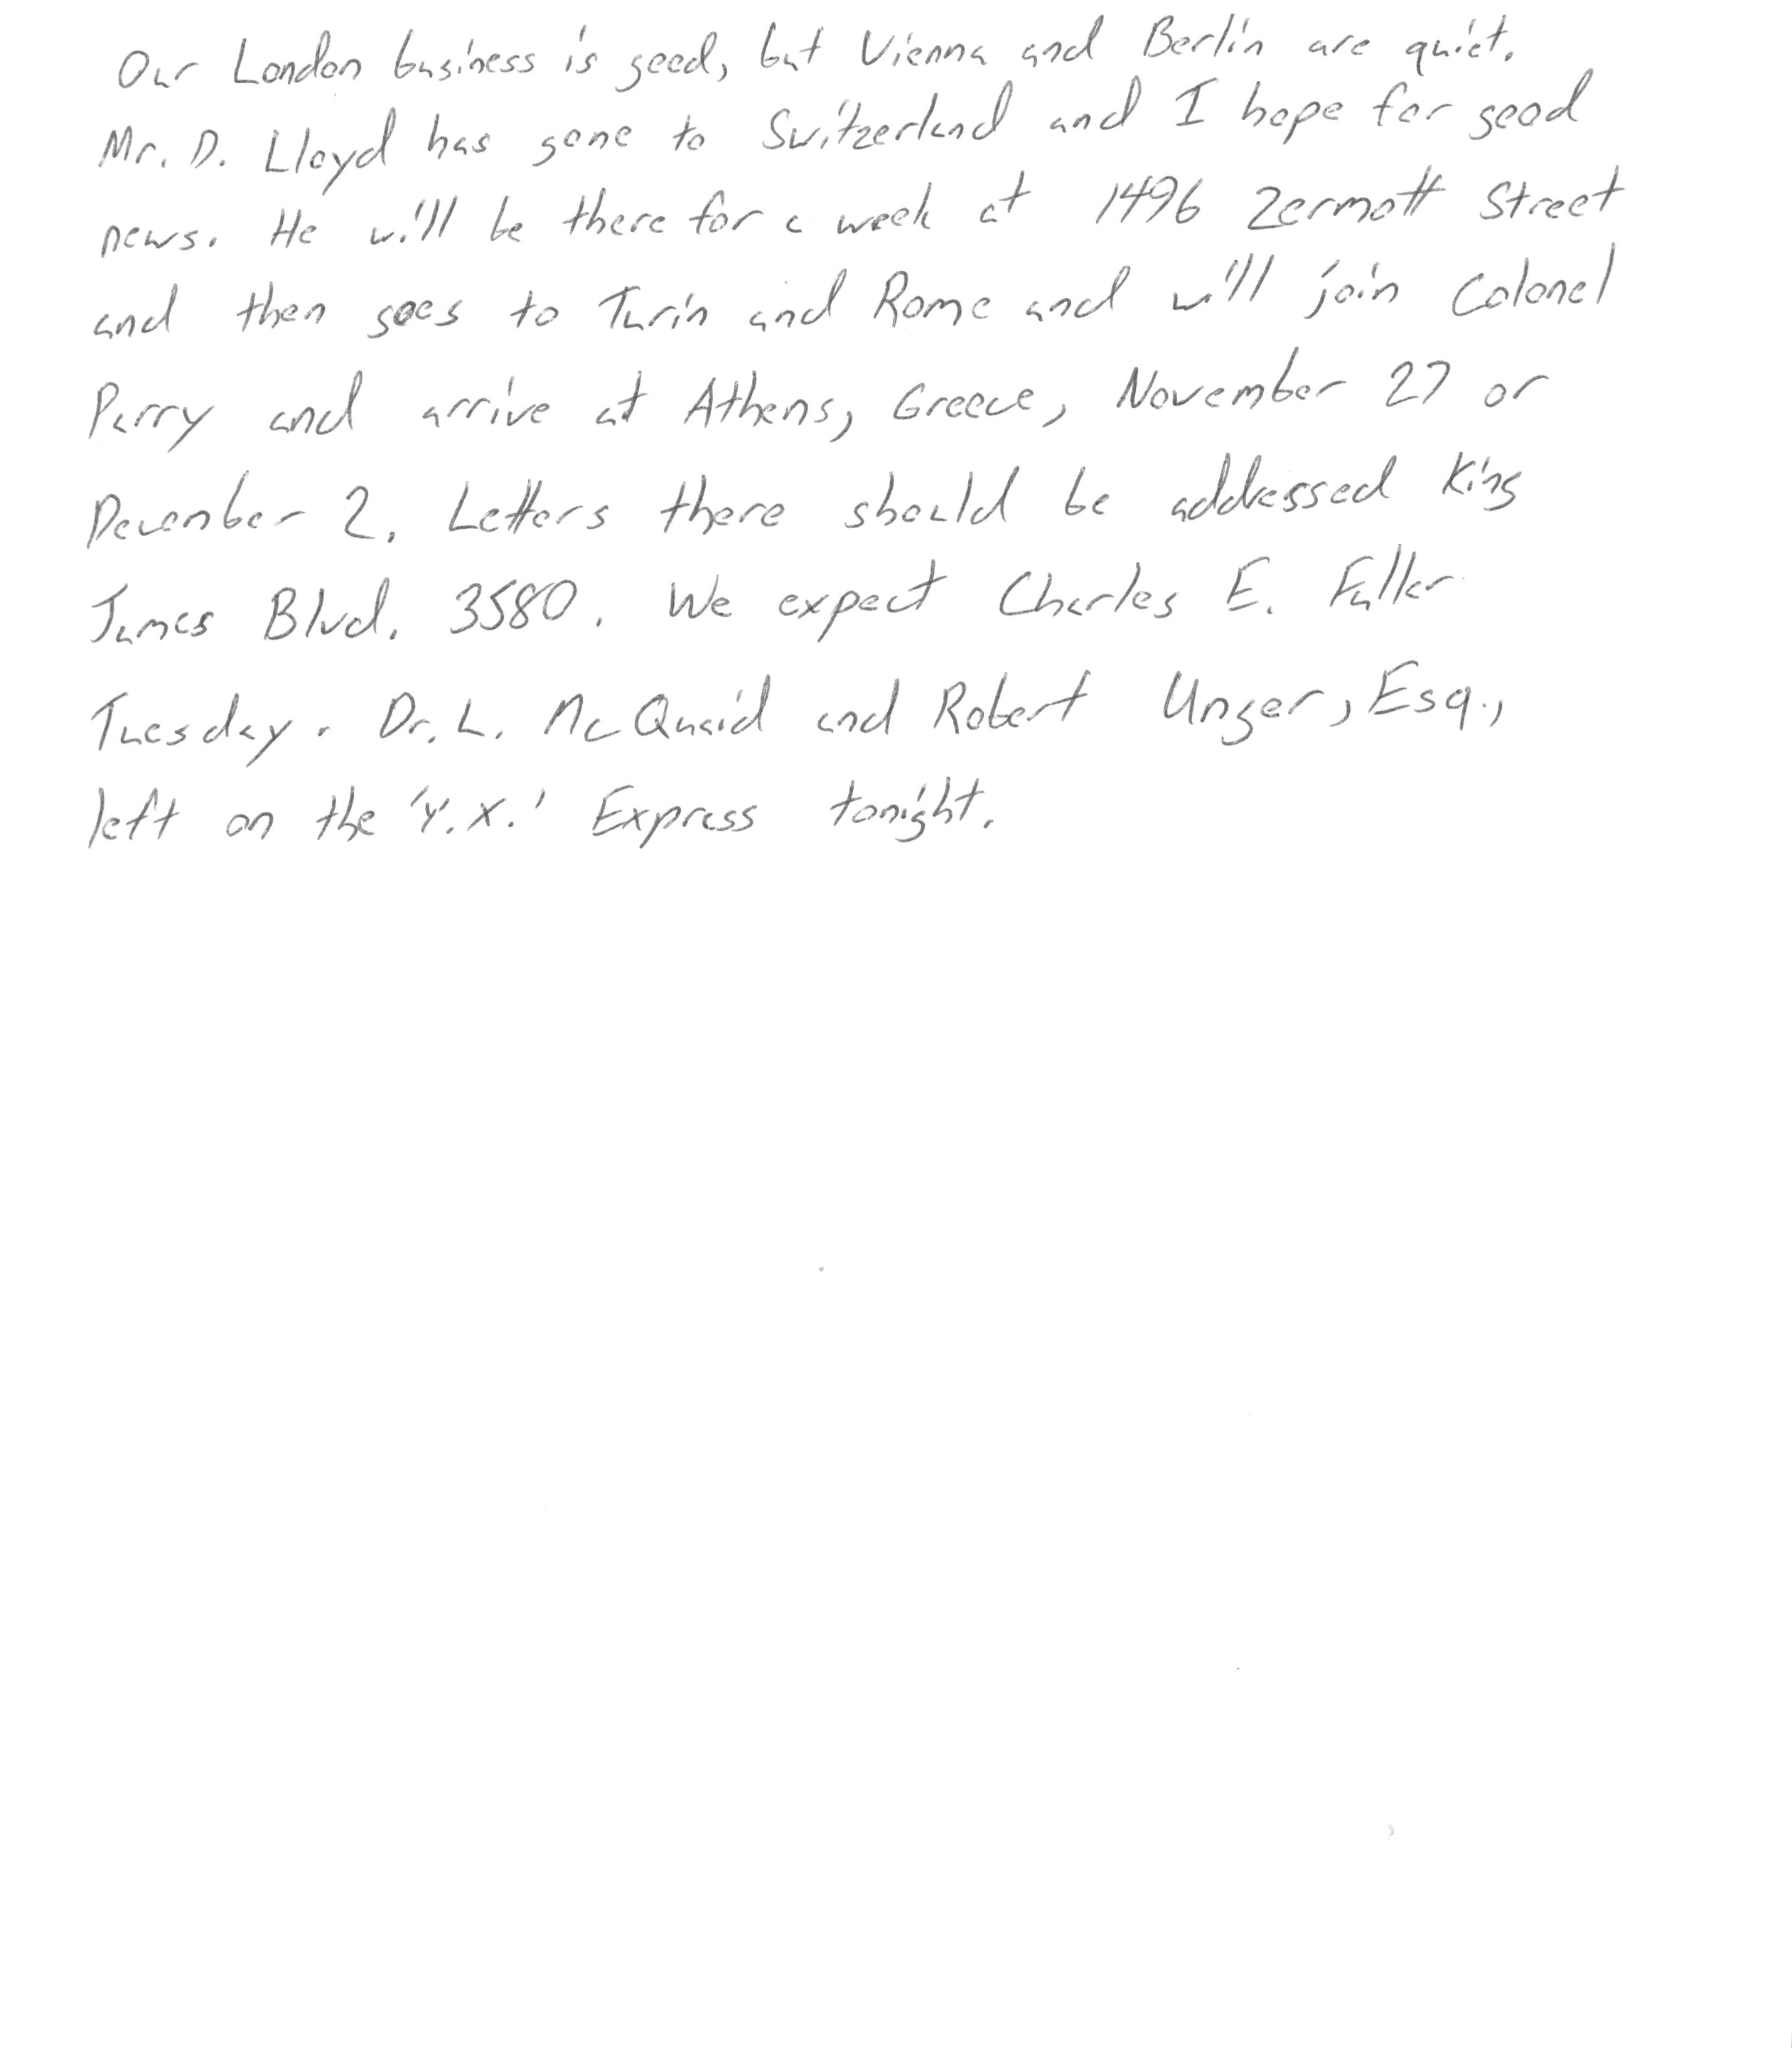 Our London business is good, but Vienna and Berlin are quiet.
Mr. D. Lloyd has gone to Switzerland and I hope for good
news. He will be there for a week at 1496 Zermott Street
and then goes to Turin and Rome and will join Colonel
Parry and arrive at Athens, Greece, November 27 or
December 2. Letters there should be addressed King
James Blvd. 3580. We expect Charles E. Fuller
Tuesday. Dr. L. McQuaid and Robert Unger, Esq.,
left on the 'Y.X.' Express tonight.